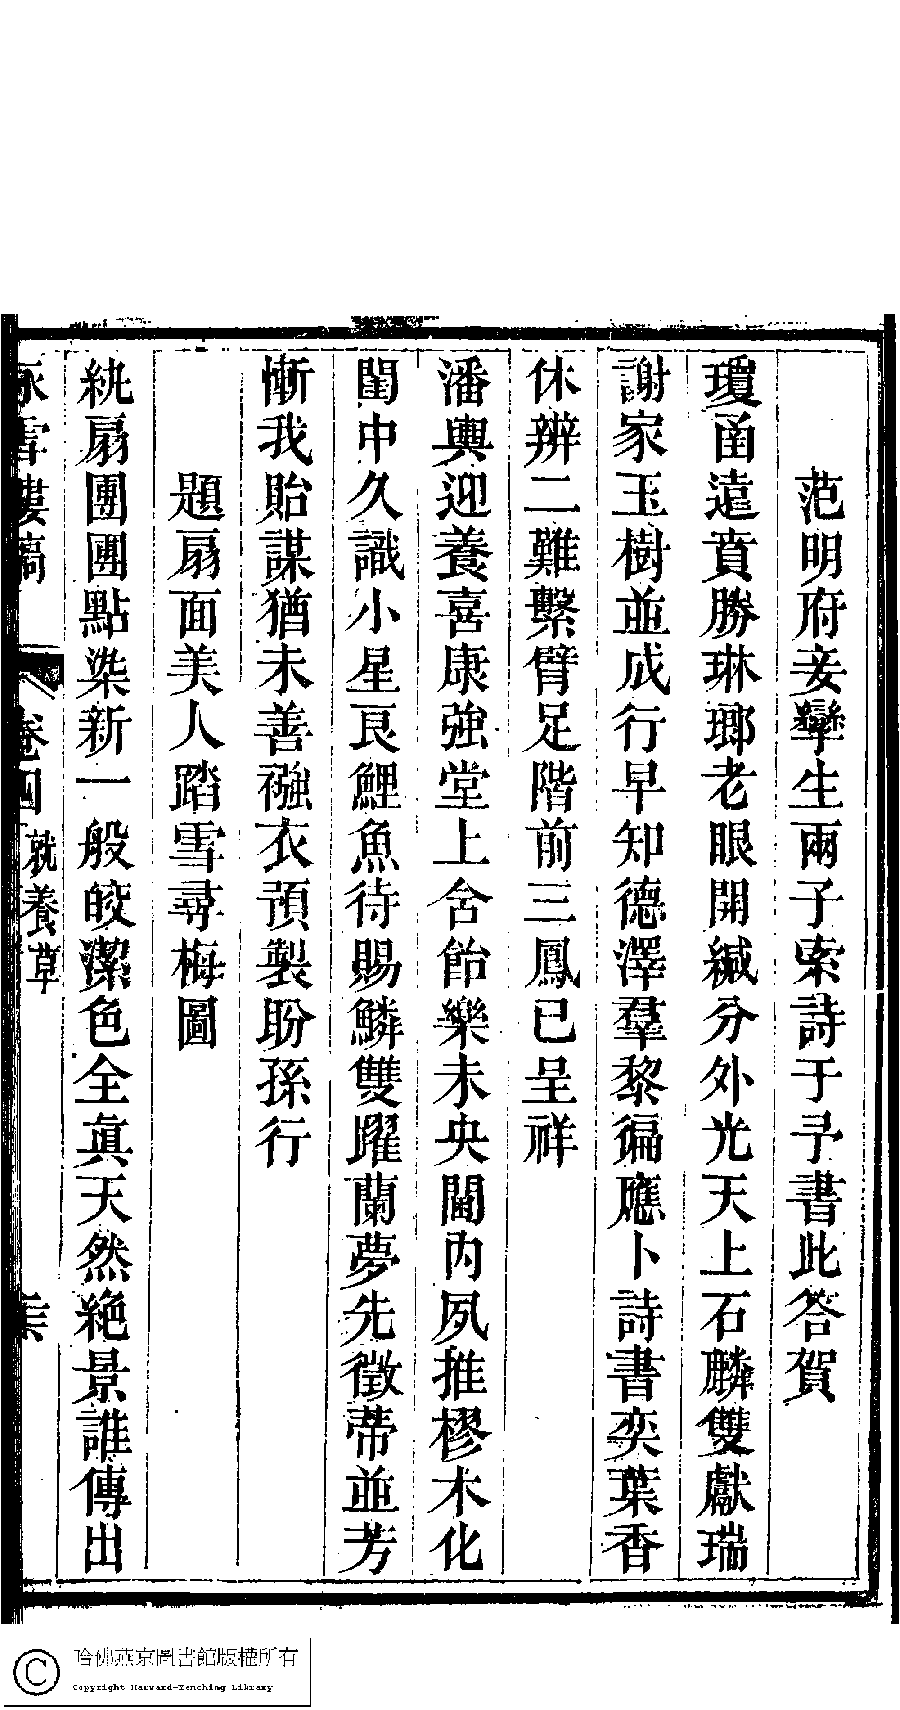 范明府妾孿生兩子索詩于予書此答賀
瓊函遠賁勝琳瑯老眼開緘分外光天上石麟雙獻瑞
謝家玉樹並成行早知德澤羣黎徧應卜詩書奕葉香
休辨二難繫臂足階前三鳳已呈祥
潘輿迎養喜康強堂上含飴樂未央閫內夙推樛木化
閨中久識小星良鯉魚待賜鱗雙躍蘭夢先徵蒂並芳
慚我貽謀猶未善襁衣預製盼孫行
題扇面美人踏雪尋梅圖
紈扇團團點染新一般皎潔色全真天然絕景誰傳出
詠雪樓稿
卷四
就養草
哈佛燕京圖書館版權所有
Copyright Harvard-Yenching Library